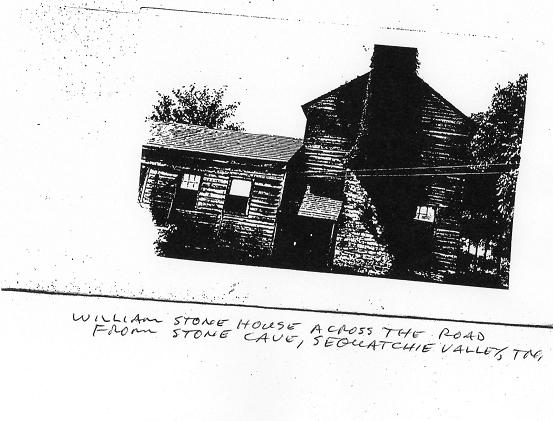 WILLIAM STONE HOUSE ACROSS THE ROAD
FROM STONE CAVE, SEQUATCHIE VALLEY, TN.